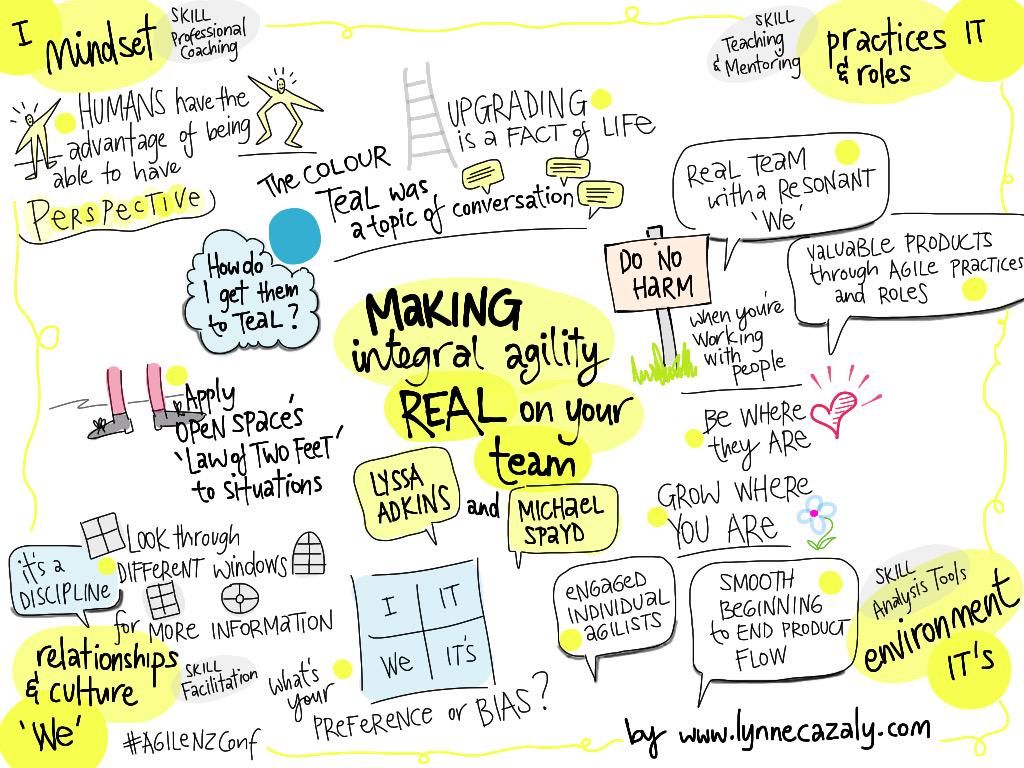 I
mindset
SKILL
Professional
Coaching
SKILL
Teaching
& Mentoring
practices
& roles
IT
HUMANS have the
advantage of being
able to have
PERSPECTIVE
UPGRADING
is a FACT of LIFE
The COLOUR
TEAL was
a topic of conversation
How do
I get them
to TEAL?
REAL TEAM
with a RESONANT
'We'
VALUABLE PRODUCTS
through AGILE PRACTICES
and ROLES
DO NO
HARM
when you're
working
with
people
MAKING
integral agility
REAL on your
team
LYSSA
ADKINS
and
MICHAEL
SPAYD
Apply
OPEN SPACE'S
'LAW of TWO FEET'
to situations
BE WHERE
they ARE
GROW WHERE
YOU ARE
it's a
DISCIPLINE
LOOK through
DIFFERENT windows
for MORE INFORMATION
I
IT
We
IT'S
what's
your
PREFERENCE or BIAS?
ENGAGED
INDIVIDUAL
AGILISTS
SMOOTH
BEGINNING
to END PRODUCT
FLOW
SKILL
Analysis Tools
environment
IT's
relationships
& culture
'We'
SKILL
Facilitation
#AGILENZConf
by www.lynnecazaly.com